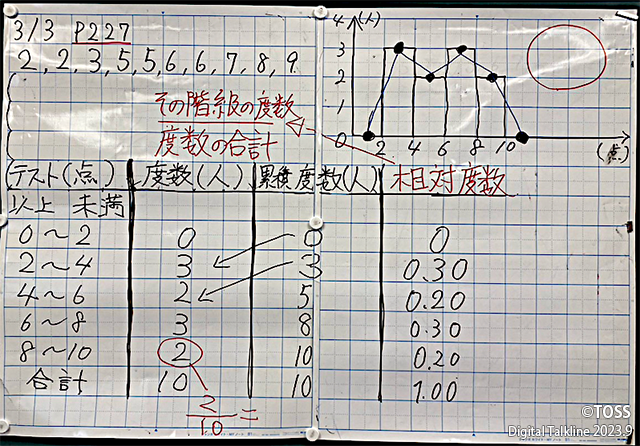 3/3 P227
2, 2, 3, 5, 5, 6, 6, 7, 8, 9
その階級の度数
度数の合計
4 (人)
3
2
1
0 2 4 6 8 10 (点)
テスト(点) 度数(人) 累積度数(人) 相対度数
以上 未満
0〜2 0 0 0
2〜4 3 3 0.30
4〜6 2 5 0.20
6〜8 3 8 0.30
8〜10 2 10 0.20
合計 10 10 1.00
2/10 =
©TOSS
Digital Talkline 2023.9